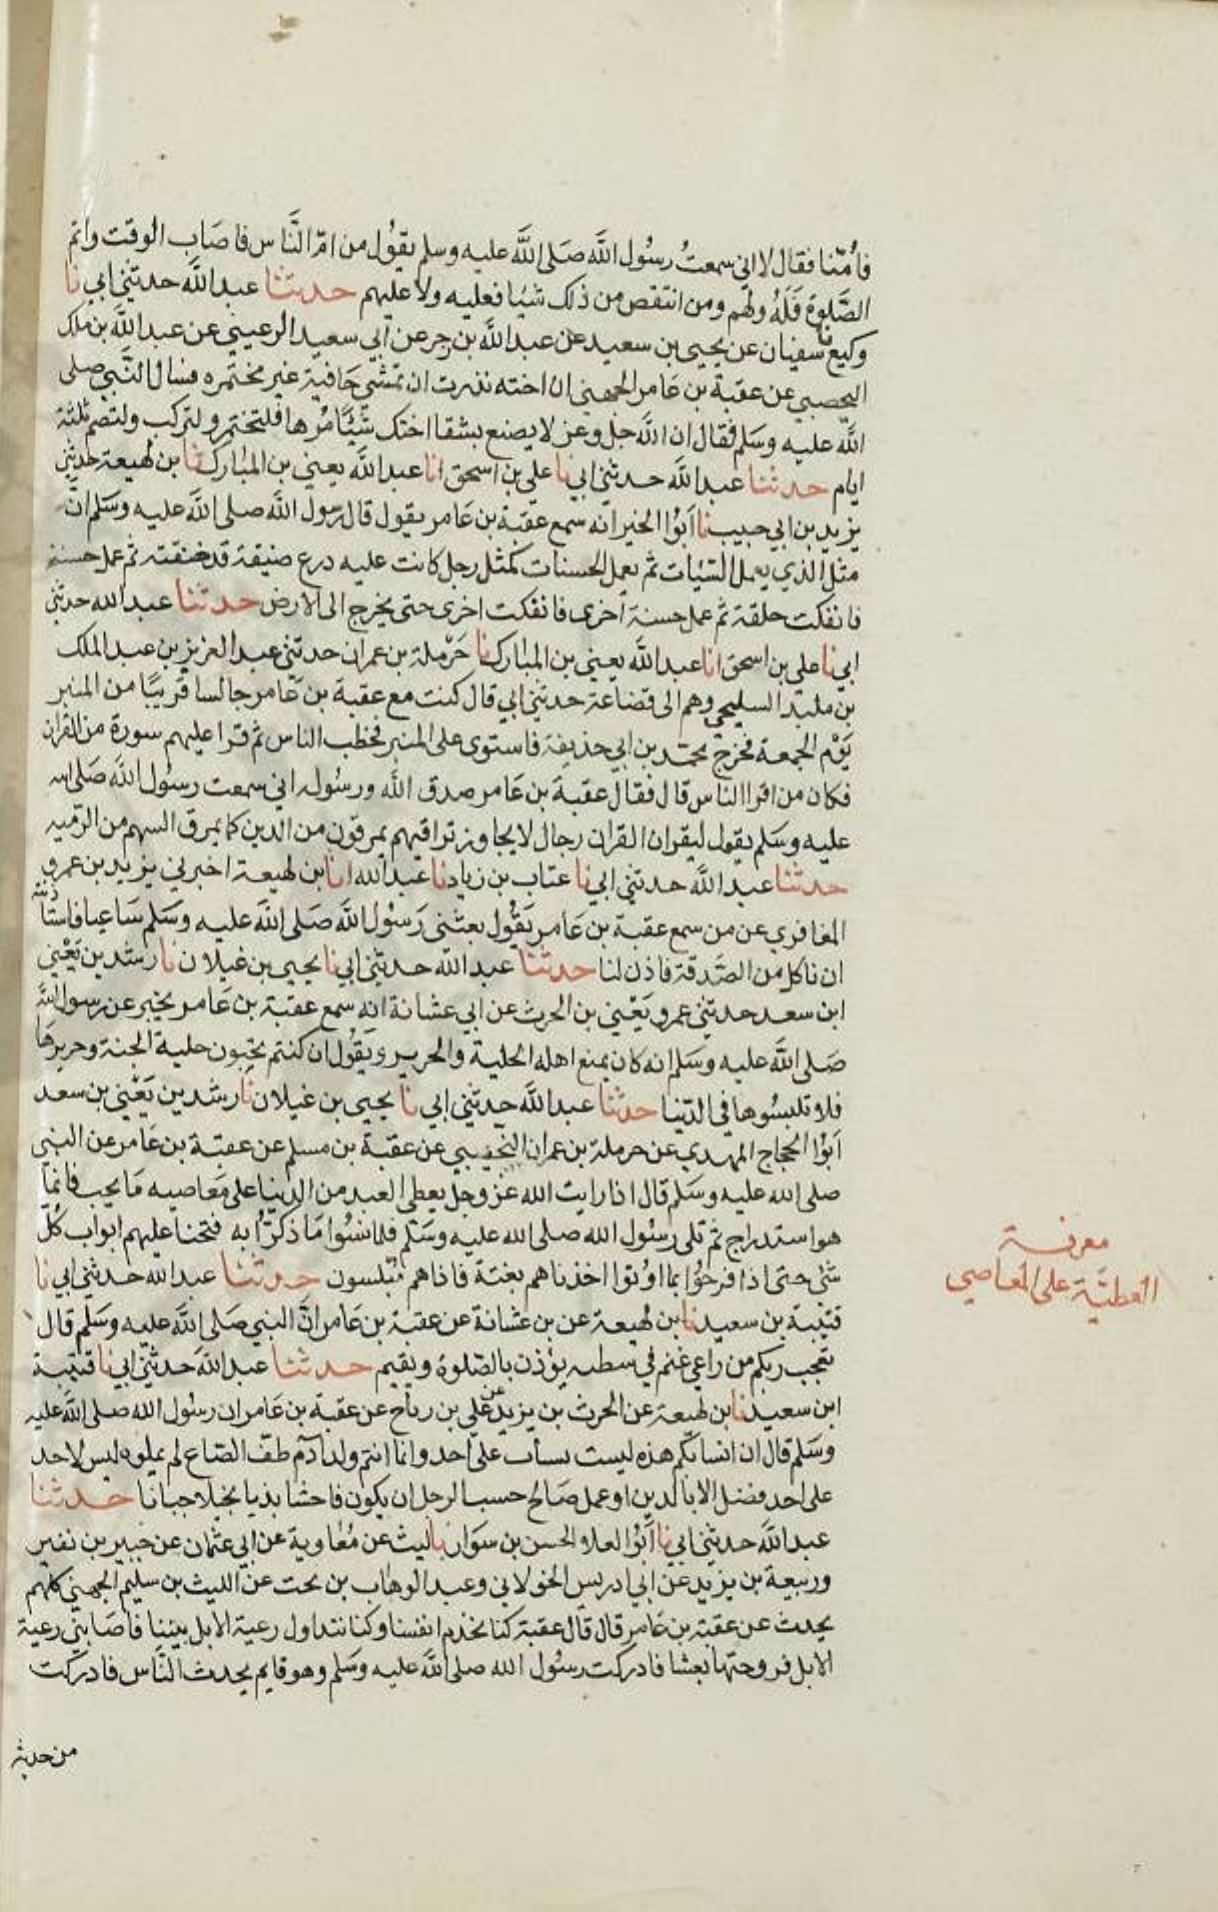 فامُّنا فقال لا اني سمعتُ رسُول اللَّه صَلى اللَّه عليه وسلم يقوُل من امّ النَّاس فاصَاب الوقت واتم
الصَّلوة فَلَهُ ولهم ومن انتقص من ذلك شيا فعليه ولا عليهم حدثنا عبد اللَّه حدثني ابي نا
وكيع نا سفيان عن يحيى بن سعيد عن عبد اللَّه بن زحر عن ابي سعيد الرعيني عن عبد اللَّه بن ملك
اليحصبي عن عقبة بن عَامر الجهني ان اخته نذرت ان تمشي حَافية غير مختمره فسال النَّبي صلى
اللَّه عليه وسَلم فقال ان اللَّه جل وعز لا يصنع بشقا اختك شيًّا مُرها فلتختمر ولتركب ولتصم ثلثة
ايام حدثنا عبد اللَّه حدثني ابي نا علي بن اسحق انا عبد اللَّه يعني بن المبارك نا بن لهيعة حدثني
يزيد بن ابي حبيب نا أبوُا الخير انه سمع عقبة بن عَامر يقول قال رسول اللَّه صلى اللَّه عليه وسَلم انَّ
مثل الذي يعمل السَّيات ثم يعمل الحسنات كمثل رجل كانت عليه درع ضيقة قد خنقته ثم عمل حسنة
فانفكت حلقة ثم عمل حسنة أخرى فانفكت اخرى حتى يخرج الى الارض حدثنا عبد الله حدثني
ابي نا علي بن اسحق انا عبد اللَّه يعني بن المبارك نا حَرْملة بن عمران حدثني عبد العزيز بن عبد الملك
بن مليد السليحي وهم الى قضاعة حدثني ابي قال كنت مع عقبة بن عَامر جالسا قريبًا من المنبر
يَوْم الجمعة فخرج محمّد بن ابي حذيفة فاستوى على المنبر فخطب الناس ثم قرا عليهم سورة من القران
فكان من اقرا الناس قال فقال عقبة بن عَامر صدق اللَّه ورسُوله اني سمعت رسوُل اللَّه صَلى الله
عليه وسَلم يقول ليقران القران رجال لا يجاوز تراقيهم يمرقون من الدين كما يمرق السهم من الرَّميه
حدثنا عبد اللَّه حدثني ابي نا عتاب بن زياد نا عبد الله انا بن لهيعة اخبرني يزيد بن عمرو
المعافري عن من سمع عقبة بن عَامر يَقوُل بعثنى رَسُول اللَّه صَلى اللَّه عليه وسَلم سَاعيا فاستاذنته
ان ناكل من الصَّدقة فاذن لنا حدثنا عبد اللَّه حدثني ابي نا يحيى بن غيلان نا رشدين يَعْني
ابن سعد حدثني عمرو يَعْني بن الحرث عن ابي عشانة انه سمع عقبة بن عَامر يخبر عن رسول اللَّه
صَلى اللَّه عليه وسَلم انه كان يمنع اهله الحلية والحرير ويَقوُل ان كنتم تحبون حلية الجنة وحريرهَا
فلا تلبسُوها في الدّنيا حدثنا عبد اللَّه حدثني ابي نا يحيى بن غيلان نا رشدين يَعْني بن سعد
أبوُا الحجاج المهدي عن حرملة بن عمران التجيبي عن عقبة بن مسلم عن عقبة بن عَامر عن النبي
صلى الله عليه وسَلم قال اذا رايت الله عز وجل يعطي العبد من الدنيا على مَعاصيه مَا يحب فانمّا
هو استدراج ثم تلى رسُول الله صلى الله عليه وسَلم فلما نسُوا مَا ذكرُّوا به فتحنا عليهم ابواب كلّ
شى حتى اذا فرحوُا بما اوُتوا اخذناهم بغتة فاذاهم مُبلسون حدثنا عبد الله حدثني ابي نا
قتيبة بن سعيد نا بن لهيعة عن بن عشانة عن عقبة بن عَامر انَّ النبي صَلى اللَّه عليه وسَلم قال
يعجب ربكم من راعي غنم في شظيه يوذن بالصَّلوة ويقيم حدثنا عبد اللَّه حدثني ابي نا قتيبة
ابن سعيد نا بن لهيعة عن الحرث بن يزيد عن علي بن رباح عن عقبة بن عَامر ان رسُول الله صلى اللَّه عليه
وسَلم قال ان انسابكم هذه ليست بسأب على احد وانما انتم ولد ادم طفّ الصَّاع لم تملوه ليس لاحد
على احد فضل الا بالدين او عمل صَالح حسب الرجل ان يكون فاحشا بذيا بخيلا جبانا حدثنا
عبد اللَّه حدثني ابي نا أبوُا العلا الحسن بن سوّار نا ليث عن مُعَاوية عن ابي عثمان عن جبير بن نفير
وربيعة بن يزيد عن ابي ادريس الخولاني وعبد الوهاب بن بخت عن الليث بن سليم الجهني كلهم
يحدث عن عقبة بن عَامر قال قال عقبة كنا نخدم انفسنا وكنا نتداول رعية الابل بيننا فاصَابني رعية
الابل فروحتها بعشا فادركت رسُول الله صلى اللَّه عليه وسَلم وهو قايم يحدث النَّاس فادركت
من حديثه
معرفة
العطيَّة على المَعاصي